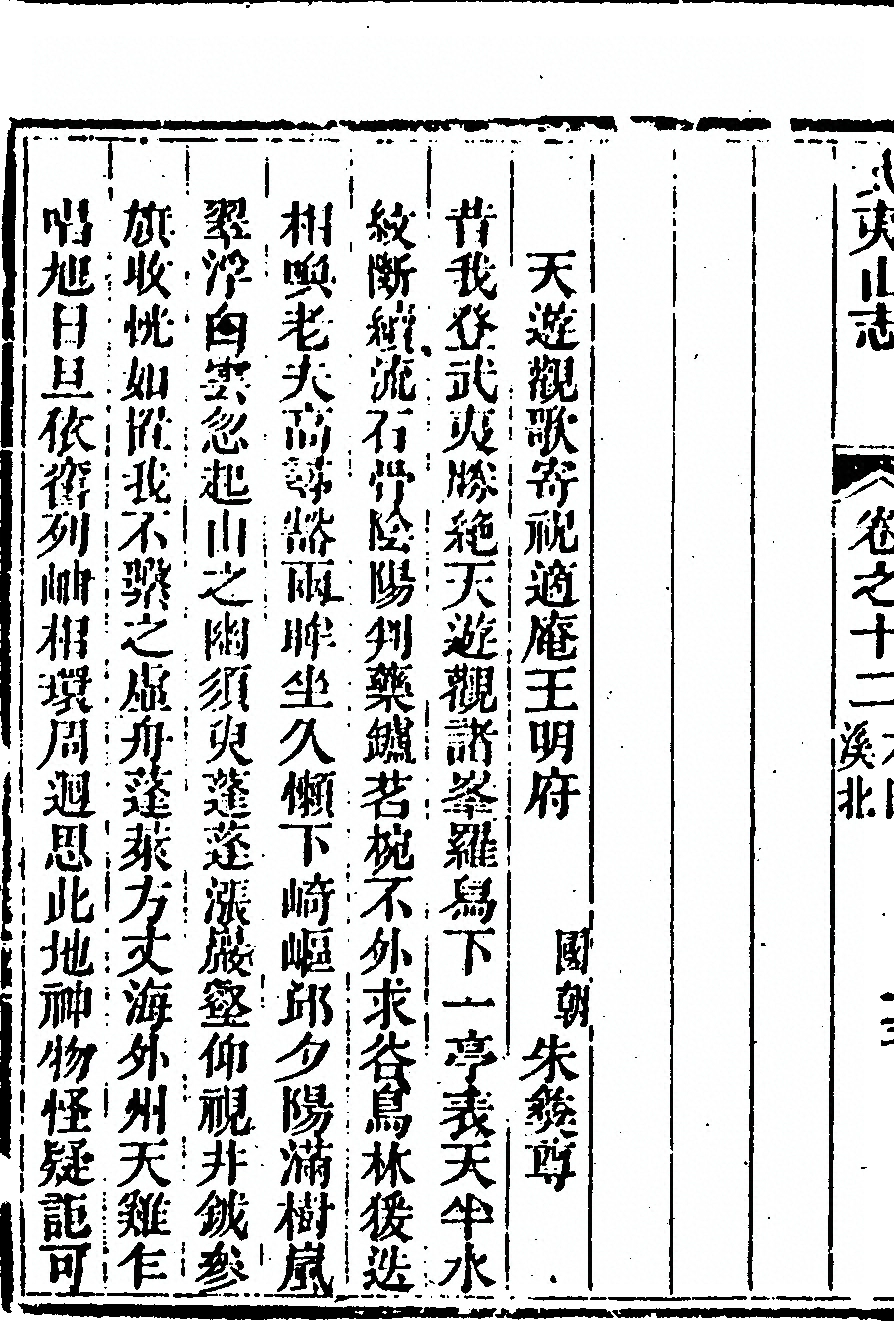 武夷山志 卷之十二 溪北
天遊觀歌寄祝適庵王明府 國朝朱彝尊
昔我登武夷勝絶天遊觀諸峯羅爲下一亭表天半水
紋斷續流石骨陰陽判藥鑪茗椀不外求谷鳥林猨迭
相喚老夫高尋豁兩眸坐久懶下崎嶇邱夕陽滿樹嵐
翠浮白雲忽起山之幽須臾蓬蓬漲巖壑仰視井鉞參
旗收恍如置我不繫之虛舟蓬萊方丈海外州天雞乍
唱旭日旦依舊列岫相環周迴思此地神物怪疑詎可